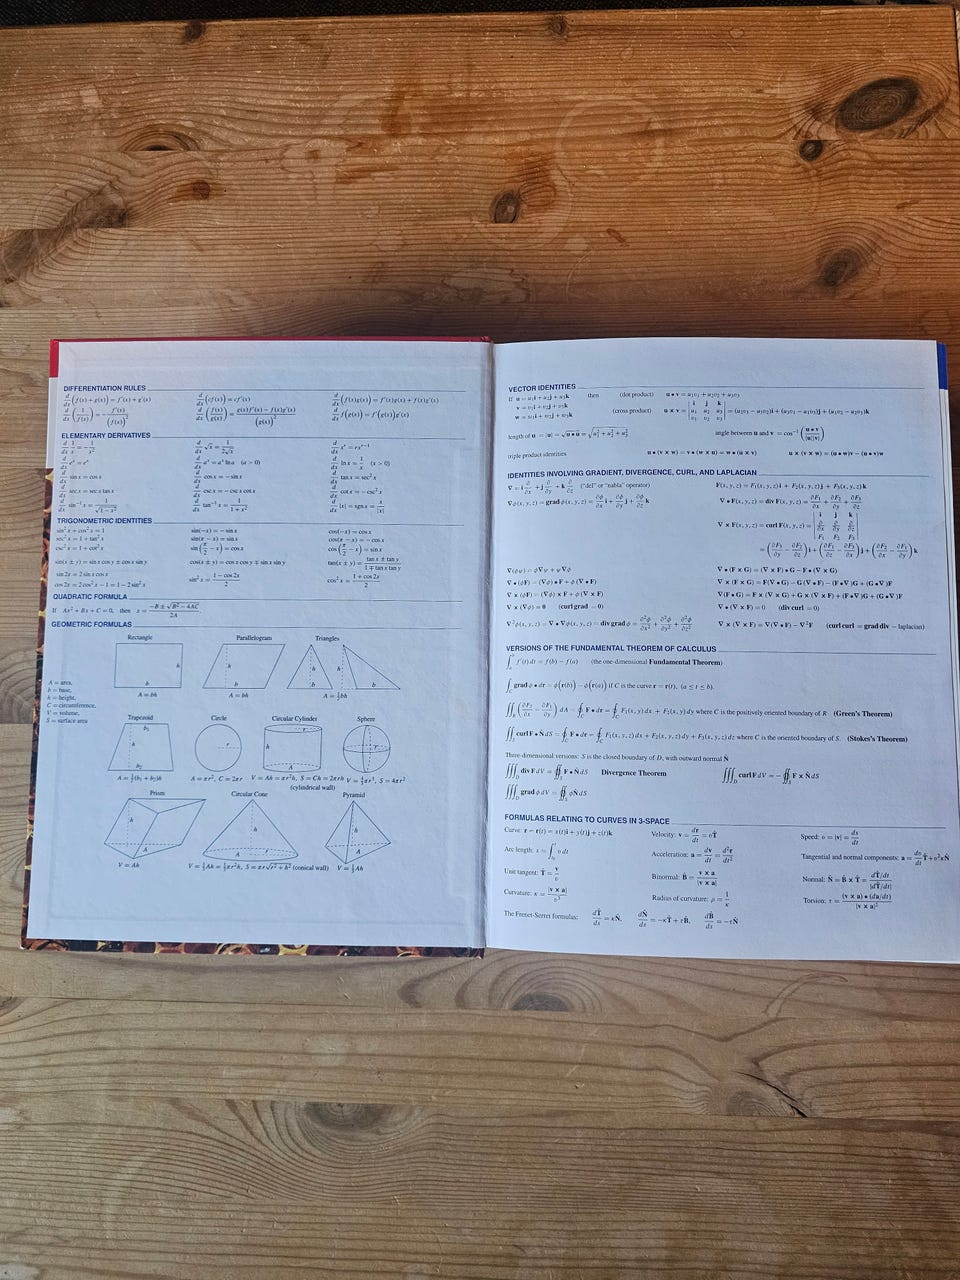 DIFFERENTIATION RULES
d/dx (f(x) + g(x)) = f′(x) + g′(x)    d/dx (cf(x)) = cf′(x)    d/dx (f(x)g(x)) = f′(x)g(x) + f(x)g′(x)
d/dx (1/f(x)) = −f′(x)/(f(x))²    d/dx (f(x)/g(x)) = g(x)f′(x) − f(x)g′(x)/(g(x))²    d/dx f(g(x)) = f′(g(x))g′(x)
ELEMENTARY DERIVATIVES
d/dx 1/x = −1/x²    d/dx √x = 1/2√x    d/dx xʳ = rxʳ⁻¹
d/dx eˣ = eˣ    d/dx aˣ = aˣ ln a (a > 0)    d/dx ln x = 1/x (x > 0)
d/dx sin x = cos x    d/dx cos x = −sin x    d/dx tan x = sec² x
d/dx sec x = sec x tan x    d/dx csc x = −csc x cot x    d/dx cot x = −csc² x
d/dx sin⁻¹ x = 1/√(1 − x²)    d/dx tan⁻¹ x = 1/(1 + x²)    d/dx |x| = sgn x = x/|x|
TRIGONOMETRIC IDENTITIES
sin² x + cos² x = 1    sin(−x) = −sin x    cos(−x) = cos x
sec² x = 1 + tan² x    sin(π − x) = sin x    cos(π − x) = −cos x
csc² x = 1 + cot² x    sin(π/2 − x) = cos x    cos(π/2 − x) = sin x
sin(x ± y) = sin x cos y ± cos x sin y    cos(x ± y) = cos x cos y ∓ sin x sin y    tan(x ± y) = tan x ± tan y/1 ∓ tan x tan y
sin 2x = 2 sin x cos x    sin² x = 1 − cos 2x/2    cos² x = 1 + cos 2x/2
cos 2x = 2 cos² x − 1 = 1 − 2 sin² x
QUADRATIC FORMULA
If Ax² + Bx + C = 0, then x = −B ± √(B² − 4AC)/2A.
GEOMETRIC FORMULAS
Rectangle    Parallelogram    Triangles
h    h    h    h
b    b    b    b
A = bh    A = bh    A = ½bh
A = area,
b = base,
h = height,
C = circumference,
V = volume,
S = surface area
Trapezoid    Circle    Circular Cylinder    Sphere
b₁    r    r    r
h    h
b₂    A
A = ½(b₁ + b₂)h    A = πr², C = 2πr    V = Ah = πr²h, S = Ch = 2πrh    V = 4/3πr³, S = 4πr²
(cylindrical wall)
Prism    Circular Cone    Pyramid
h    h    h
A    A    r    A
V = Ah    V = ⅓Ah = ⅓πr²h, S = πr√(r² + h²) (conical wall)    V = ⅓Ah
VECTOR IDENTITIES
If u = u₁i + u₂j + u₃k    then    (dot product)    u • v = u₁v₁ + u₂v₂ + u₃v₃
v = v₁i + v₂j + v₃k    (cross product)    u × v = | i j k ; u₁ u₂ u₃ ; v₁ v₂ v₃ | = (u₂v₃ − u₃v₂)i + (u₃v₁ − u₁v₃)j + (u₁v₂ − u₂v₁)k
w = w₁i + w₂j + w₃k
length of u = |u| = √(u • u) = √(u₁² + u₂² + u₃²)    angle between u and v = cos⁻¹ (u • v/|u||v|)
triple product identities    u • (v × w) = v • (w × u) = w • (u × v)    u × (v × w) = (u • w)v − (u • v)w
IDENTITIES INVOLVING GRADIENT, DIVERGENCE, CURL, AND LAPLACIAN
∇ = i ∂/∂x + j ∂/∂y + k ∂/∂z ("del" or "nabla" operator)    F(x, y, z) = F₁(x, y, z) i + F₂(x, y, z) j + F₃(x, y, z) k
∇φ(x, y, z) = grad φ(x, y, z) = ∂φ/∂x i + ∂φ/∂y j + ∂φ/∂z k    ∇ • F(x, y, z) = div F(x, y, z) = ∂F₁/∂x + ∂F₂/∂y + ∂F₃/∂z
∇ × F(x, y, z) = curl F(x, y, z) = | i j k ; ∂/∂x ∂/∂y ∂/∂z ; F₁ F₂ F₃ |
= (∂F₃/∂y − ∂F₂/∂z) i + (∂F₁/∂z − ∂F₃/∂x) j + (∂F₂/∂x − ∂F₁/∂y) k
∇(φψ) = φ∇ψ + ψ∇φ    ∇ • (F × G) = (∇ × F) • G − F • (∇ × G)
∇ • (φF) = (∇φ) • F + φ(∇ • F)    ∇ × (F × G) = F(∇ • G) − G(∇ • F) − (F • ∇)G + (G • ∇)F
∇ × (φF) = (∇φ) × F + φ(∇ × F)    ∇(F • G) = F × (∇ × G) + G × (∇ × F) + (F • ∇)G + (G • ∇)F
∇ × (∇φ) = 0 (curl grad = 0)    ∇ • (∇ × F) = 0 (div curl = 0)
∇²φ(x, y, z) = ∇ • ∇φ(x, y, z) = div grad φ = ∂²φ/∂x² + ∂²φ/∂y² + ∂²φ/∂z²    ∇ × (∇ × F) = ∇(∇ • F) − ∇²F (curl curl = grad div − laplacian)
VERSIONS OF THE FUNDAMENTAL THEOREM OF CALCULUS
∫ₐᵇ f′(t) dt = f(b) − f(a) (the one-dimensional Fundamental Theorem)
∫_C grad φ • dr = φ(r(b)) − φ(r(a)) if C is the curve r = r(t), (a ≤ t ≤ b).
∬_R (∂F₂/∂x − ∂F₁/∂y) dA = ∮_C F • dr = ∮_C F₁(x, y) dx + F₂(x, y) dy where C is the positively oriented boundary of R (Green's Theorem)
∬_S curl F • N̂ dS = ∮_C F • dr = ∮_C F₁(x, y, z) dx + F₂(x, y, z) dy + F₃(x, y, z) dz where C is the oriented boundary of S. (Stokes's Theorem)
Three-dimensional versions: S is the closed boundary of D, with outward normal N̂
∭_D div F dV = ∯_S F • N̂ dS Divergence Theorem    ∭_D curl F dV = −∯_S F × N̂ dS
∭_D grad φ dV = ∯_S φN̂ dS
FORMULAS RELATING TO CURVES IN 3-SPACE
Curve: r = r(t) = x(t)i + y(t)j + z(t)k    Velocity: v = dr/dt = vT̂    Speed: v = |v| = ds/dt
Arc length: s = ∫_t₀^t v dt    Acceleration: a = dv/dt = d²r/dt²    Tangential and normal components: a = dv/dt T̂ + v²κN̂
Unit tangent: T̂ = v/v    Binormal: B̂ = v × a/|v × a|    Normal: N̂ = B̂ × T̂ = dT̂/dt/|dT̂/dt|
Curvature: κ = |v × a|/v³    Radius of curvature: ρ = 1/κ    Torsion: τ = (v × a) • (da/dt)/|v × a|²
The Frenet-Serret formulas: dT̂/ds = κN̂, dN̂/ds = −κT̂ + τB̂, dB̂/ds = −τN̂